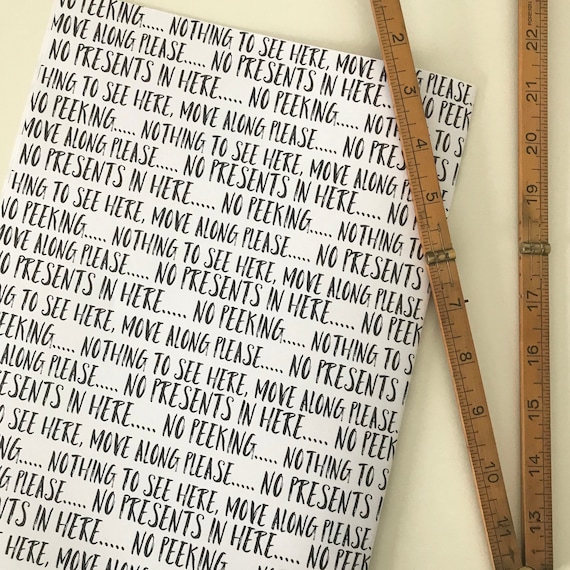 NO PEEKING.... NOTHING TO SEE HERE, MOVE ALONG PLEASE
MOVE ALONG PLEASE.... NO PRESENTS IN HERE..... NO PEEK
THING TO SEE HERE, MOVE ALONG PLEASE....
NO PEEKING.... NOTHING TO SEE HERE, MOVE ALONG
MOVE ALONG PLEASE.... NO PRESENTS IN HERE.....
NO PRESENTS IN HERE..... NO PEEKING....
THING TO SEE HERE, MOVE ALONG PLEASE.... NO PRESENTS
NO PEEKING.... NOTHING TO SEE HERE, MOVE ALONG PLEASE.
MOVE ALONG PLEASE.... NO PRESENTS IN HERE..... NO
NO PRESENTS IN HERE..... NO PEEKING.... NOTHING TO
THING TO SEE HERE, MOVE ALONG PLEASE.... NO PRESENTS
PEEKING.... NOTHING TO SEE HERE, MOVE ALONG PLEASE.
ALONG PLEASE.... NO PRESENTS IN HERE..... NO PEEK
PRESENTS IN HERE..... NO PEEKING.... NOTHING TO S
TO SEE HERE, MOVE ALONG PLEASE.... NO PRESENTS
KING.... NOTHING TO SEE HERE, MOVE ALONG PLEASE.
NG PLEASE.... NO PRESENTS IN HERE..... NO PEEK
NTS IN HERE..... NO PEEKING.... NOTHING TO S
SEE HERE, MOVE ALONG PLEASE.... NO
2
3
4
5
7
8
9
10
11
22
21
20
19
17
16
15
14
13